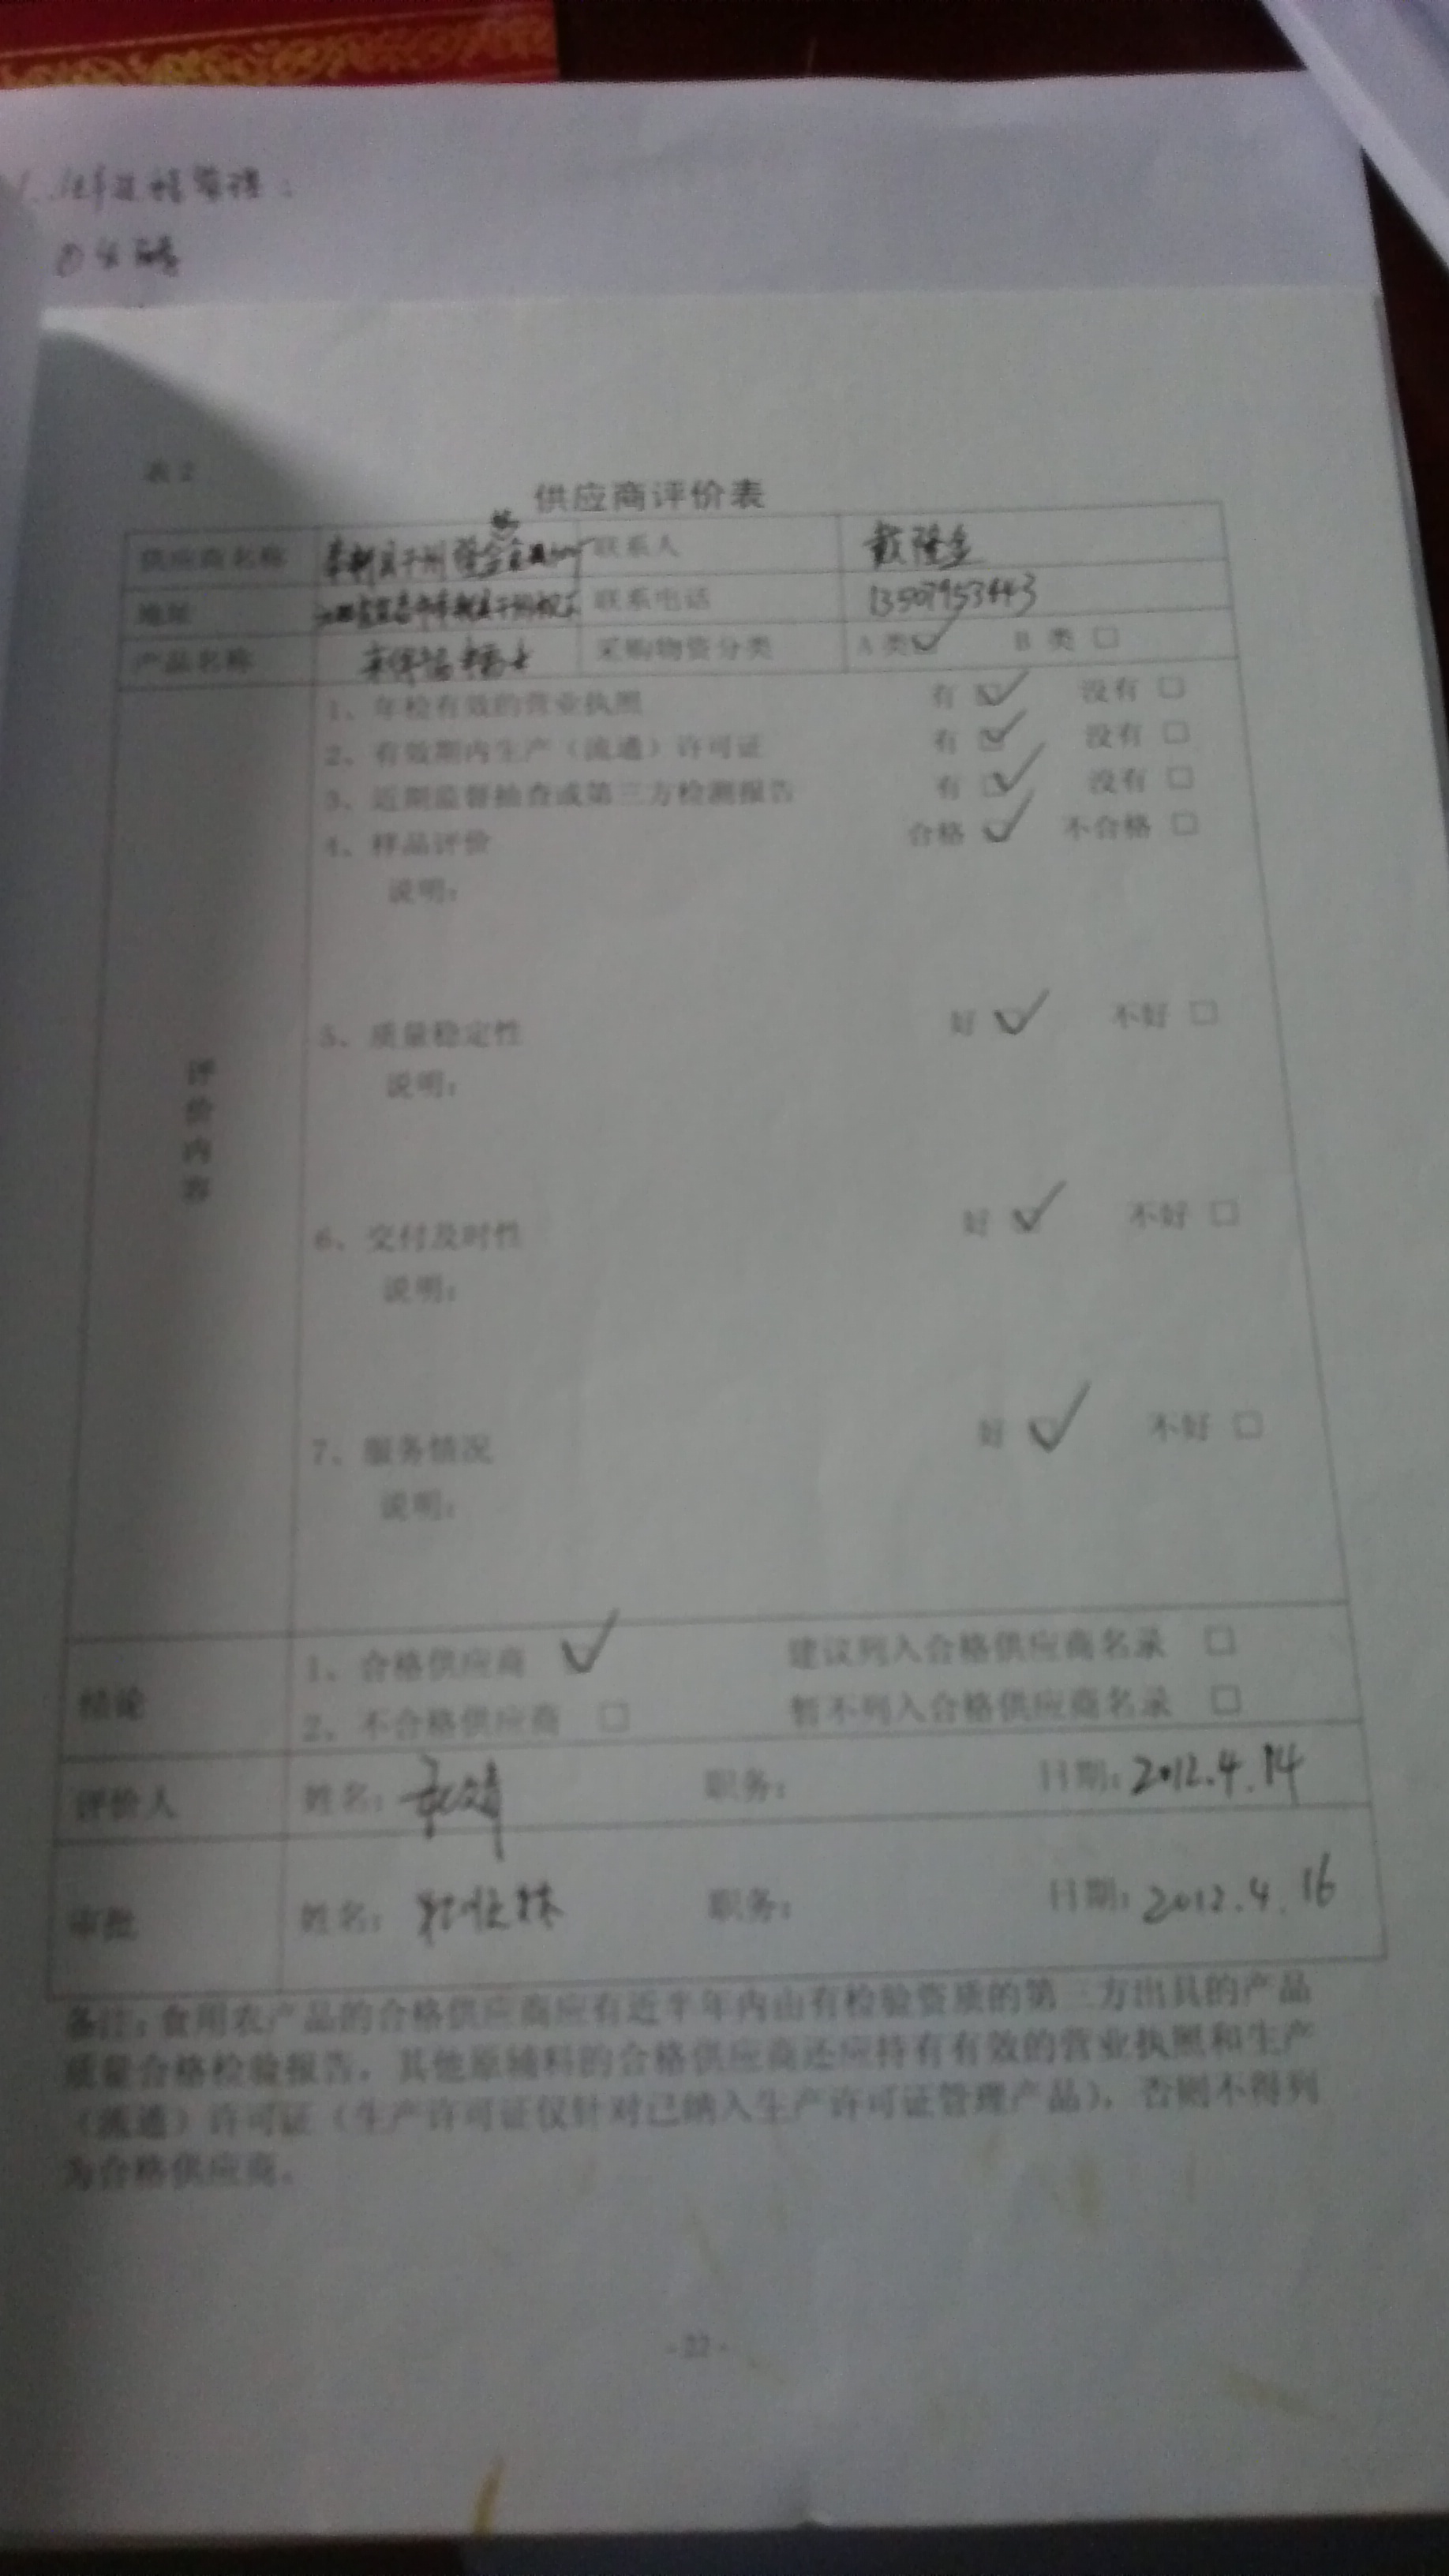 表2
供应商评价表
供应商名称 联系人 戴隆金
地址 联系电话 13507953443
产品名称 采购物资分类 A 类☑ B 类□
1、年检有效的营业执照 有☑ 没有□
2、有效期内生产（流通）许可证 有☑ 没有□
3、近期监督抽查或第三方检测报告 有☑ 没有□
4、样品评价 合格☑ 不合格□
说明：
5、质量稳定性 好☑ 不好□
说明：
评价内容
6、交付及时性 好☑ 不好□
说明：
7、服务情况 好☑ 不好□
说明：
结论
1、合格供应商 ☑ 建议列入合格供应商名录 □
2、不合格供应商 □ 暂不列入合格供应商名录 □
评价人 姓名： 职务： 日期：2012.4.14
审批 姓名： 职务： 日期：2012.4.16
备注：食用农产品的合格供应商应有近半年内由有检验资质的第三方出具的产品
质量合格检验报告，其他原辅料的合格供应商还应持有有效的营业执照和生产
（流通）许可证（生产许可证仅针对已纳入生产许可证管理产品），否则不得列
为合格供应商。
- 22 -